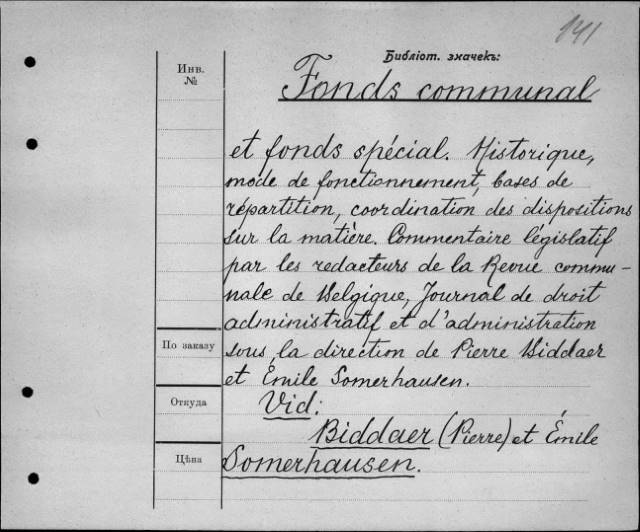 141
Библіот. значекъ:
Инв.
№
Fonds communal
et fonds spécial. Historique,
mode de fonctionnement, bases de
répartition, coordination des dispositions
sur la matière. Commentaire législatif
par les redacteurs de la Revue commu-
nale de Belgique, Journal de droit
administratif et d'administration
sous, la direction de Pierre Biddaer
et Émile Somerhausen.
По заказу
Откуда
Цѣна
Vid:
Biddaer (Pierre) et Émile
Somerhausen.